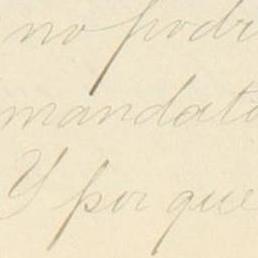 no podr
mandato
Y por que